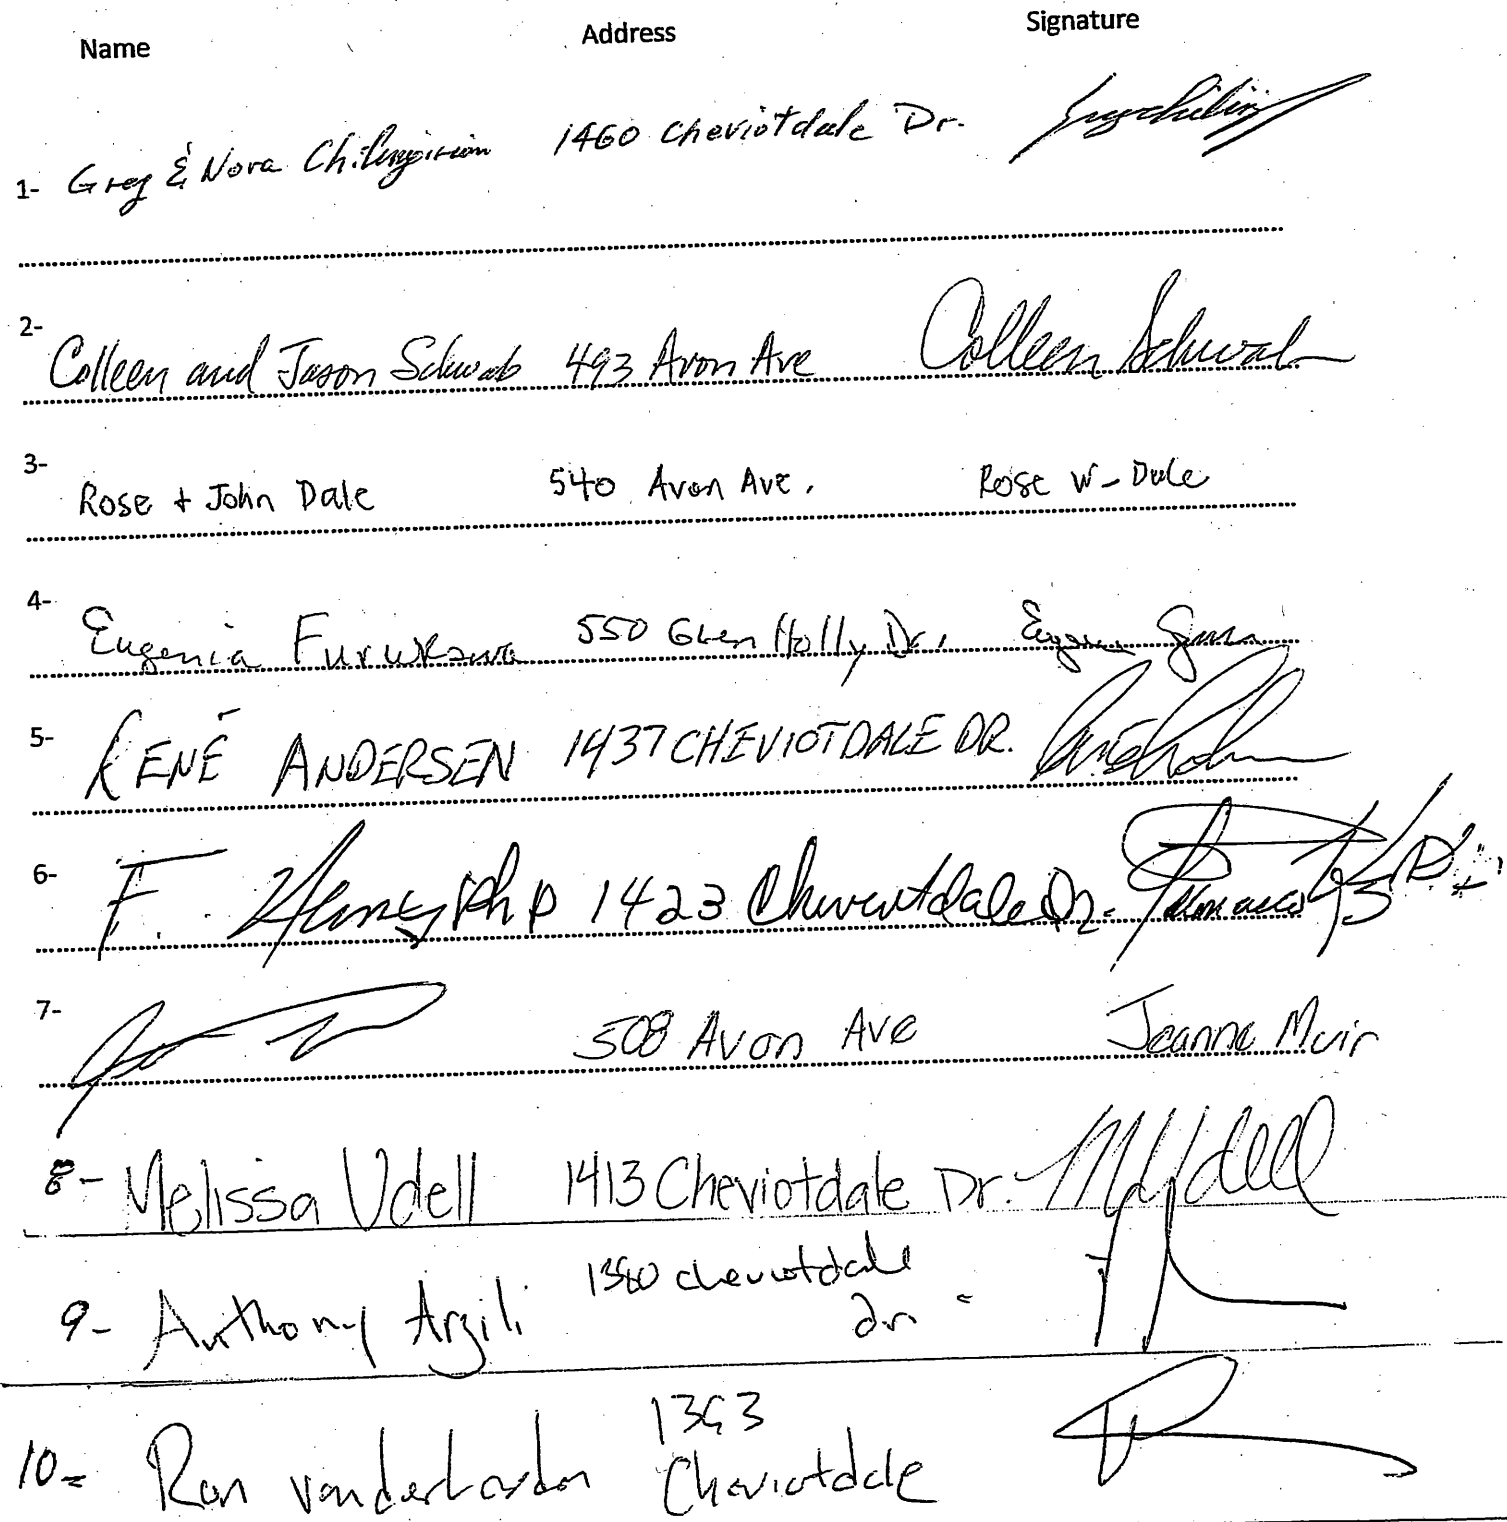 Name Address Signature
1- Greg & Nora Chilingirian 1460 Cheviotdale Dr.
2- Colleen and Jason Schwab 493 Avon Ave Colleen Schwab
3- Rose + John Dale 540 Avon Ave. Rose W-Dale
4- Eugenia Furukawa 550 Glen Holly Dr.
5- RENÉ ANDERSEN 1437 CHEVIOTDALE DR.
6- F. 1423 Cheviotdale Dr.
7- 508 Avon Ave Jeanne Muir
8- Melissa Udell 1413 Cheviotdale Dr. M Udell
9- Anthony Argili 1380 cheviotdale
dr
10- Ron
Cheviotdale